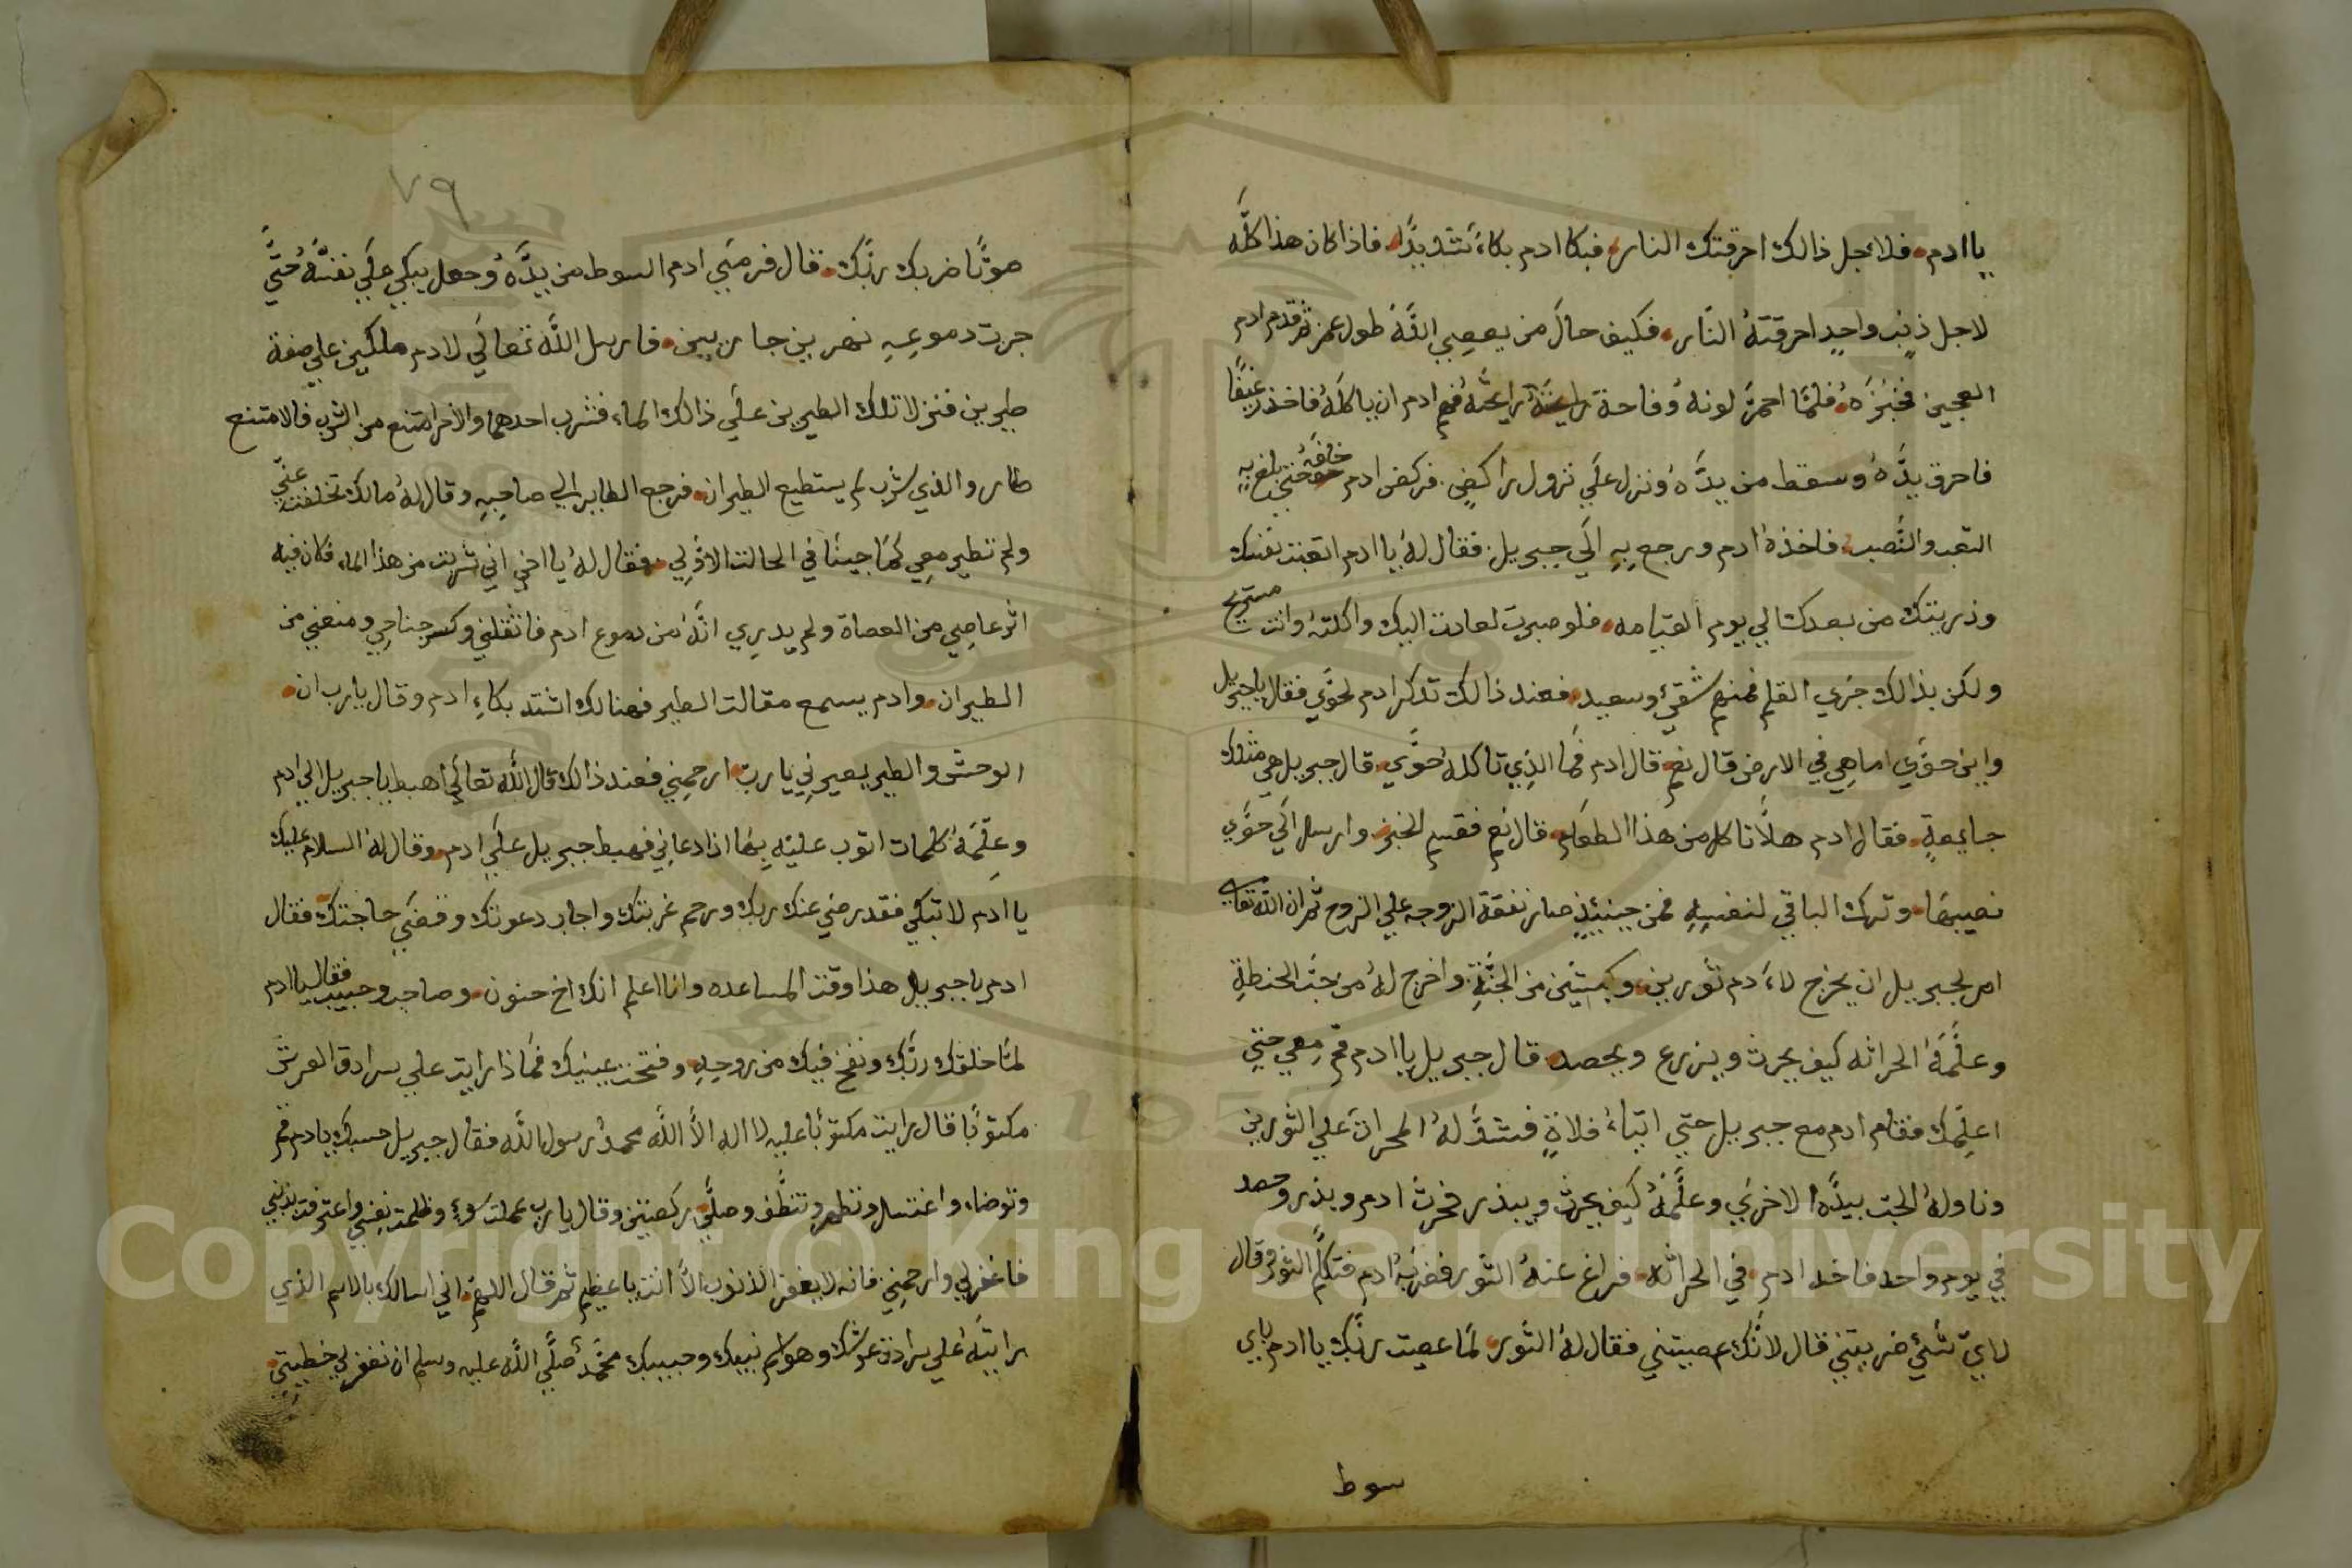 ياادم فلاجل ذالك احرقتك النار فبكا ادم بكاءً شديدًا فاذا كان هذا كلَّه
لاجل ذنبٍ واحدٍ احرقتهُ النَّار فكيف حال من يعصِي اللَّهَ طول عمره ثم قدم ادم
العجين فخبزهُ فلمَّا احمرَّ لونهُ وفاحة رايحتهُ فهم ادم ان ياكلهُ فاخذ رغيفًا
فاحرق يدَّهُ وسقط من يدَّهُ ونزل علَي نزول راكضٍ فركض ادم خلفهُ حتي بلغ بهِ
التعب والنَّصب فاخذهُ ادم ورجع بِهِ الَي جبريل فقال لهُ ياادم اتعبت نفسك
وذريتك من بعدك الي يوم القيامه فلو صبرت لعادت اليك واكلتهُ وانت مستريح
ولكن بذالك جَري القلم فمنهم شقيٌ وسعيد فعند ذالك تذكر ادم لحوَّي فقال ياجبريل
واين حوَّي اماهِي في الارض قال نعم قال ادم فما الذِي تاكلهُ حوَّي قال جبريل هي مثلك
جايعةٍ فقال ادم هلَّا تاكل من هذا الطعام قال نعم فقسم الخبز وارسل الَي حوَّي
نصيبهَا وترك الباقي لنفسِهِ فمن حينيئذٍ صار نفقة الزوجه علي الزوج ثم ان اللَّه تعالي
امر لجبريل ان يخرج لاءَدم ثورين وكبشَين من الجنَّةِ واخرج لهُ من حبّ الحنطةِ
وعلَّمَهُ الحراثه كيف يحرث ويزرع ويحصد قال جبريل ياادم قم مِعي حتي
اعلِّمك فقام ادم مع جبريل حتي اتياءُ فلاةٍ فشدَّ لهُ المحراث علي الثورين
وناولهُ الحب بيدَّه الاخرَي وعلَّمهُ كيف يحرث ويبذر فحرث ادم وبذر وحصد
في يوم واحد فاخد ادم في الحراثه فراغ عنهُ الثور فضربهُ ادم فتكلَّم الثور وقال
لايّ شئي ضربتني قال لانَّك عصيتني فقال لهُ الثَّور لمَّا عصيت ربَّك ياادم باي
سوط
٧٩
صوتًا ضربك ربَّك قال فرمَي ادم السوط من يدَّهُ وجعل يبكِي علَي نفسَّهُ حتَّي
جرت دموعِهِ نهرين جاريين فارسل اللَّه تعالَي لادم ملكين علي صفة
طيرين فنزلا تلك الطيرين علَي ذالك الماء فشرب احدهما والاخر امتنع من الشرب فالامتنع
طار والذي شرب لم يستطيع الطيران فرجع الطاير الي صاحِبِهِ وقال لهُ مالك تخلفت عنّي
ولم تطير معِي كمَا جينَا في الحالت الاوَّلِي فقال لهُ يااخي اني شربت من هذا الماء فكان فيه
اثر عاصِي من العصاة ولم يدرِي انَّهُ من دموع ادم فاثقلني وكسر جناحِي ومنعني من
الطيران وادم يسمع مقالت الطير فهنالك اشتد بكاءِ ادم وقال يارب ان
الوحش والطير يعيرنِي يارب ارحمني فعند ذالك قال اللَّه تعالَي اهبط ياجبريل الي ادم
وعلِّمهُ كلمات اتوب عليَه بِها اذا دعانِي فهبط جبريل علَي ادم وقال لهُ السلام عليك
ياادم لا تبكِي فقد رضي عنك ربك ورحم غربتك واجاب دعوتك وقضَي حاجتك فقال
ادم ياجبريل هذا وقت المساعده وانااعلم انك اخ حنون وصاحب وحبيب فقال ياادم
لمَّا خلقك ربَّك ونفخ فيك من روحِهِ وفتحت عينيك فمَا ذا رايت علي سرادق العرش
مكتوبًا قال رايت مكتوبًا عليه لا اله الاَّ اللَّه محمدُ رسول اللَّه فقال جبريل حسبك يادم قم
وتوضاء واغتسل وتطهر وتنظَّف وصلَّي ركعتين وقال يارب عملت سوءٍ وظلمت نفسِي واعترفت بذنبي
فاغفرلِي وارحمنِي فانه لا يغفر الذنوب الاَّ انت ياعظيم ثم قال اللهم اني اسالك بالاسم الذي
رايتَهُ علي سرادق عرشك وهو اسم نبيك وحبيبك محمَّد صلَّي اللَّه عليه وسلم ان تغفرلي خطيتِي
Copyright © King Saud University
1957